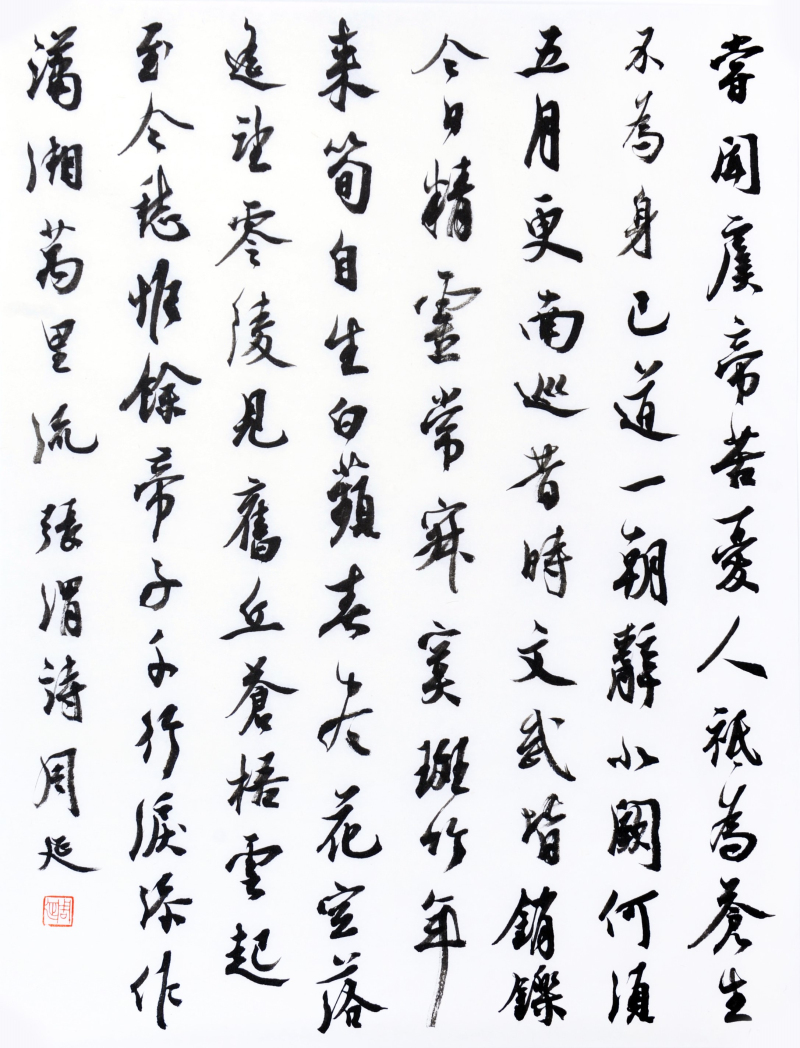 嘗聞虞帝苦憂人祇為蒼生
不為身已道一朝辭北闕何須
五月更南巡昔時文武皆銷鑠
今日精靈常寂寞斑竹年
来筍自生白蘋春尽花空落
遙望零陵見舊丘蒼梧雲起
至今愁惟餘帝子千行淚添作
瀟湘萬里流張渭詩周延
周延